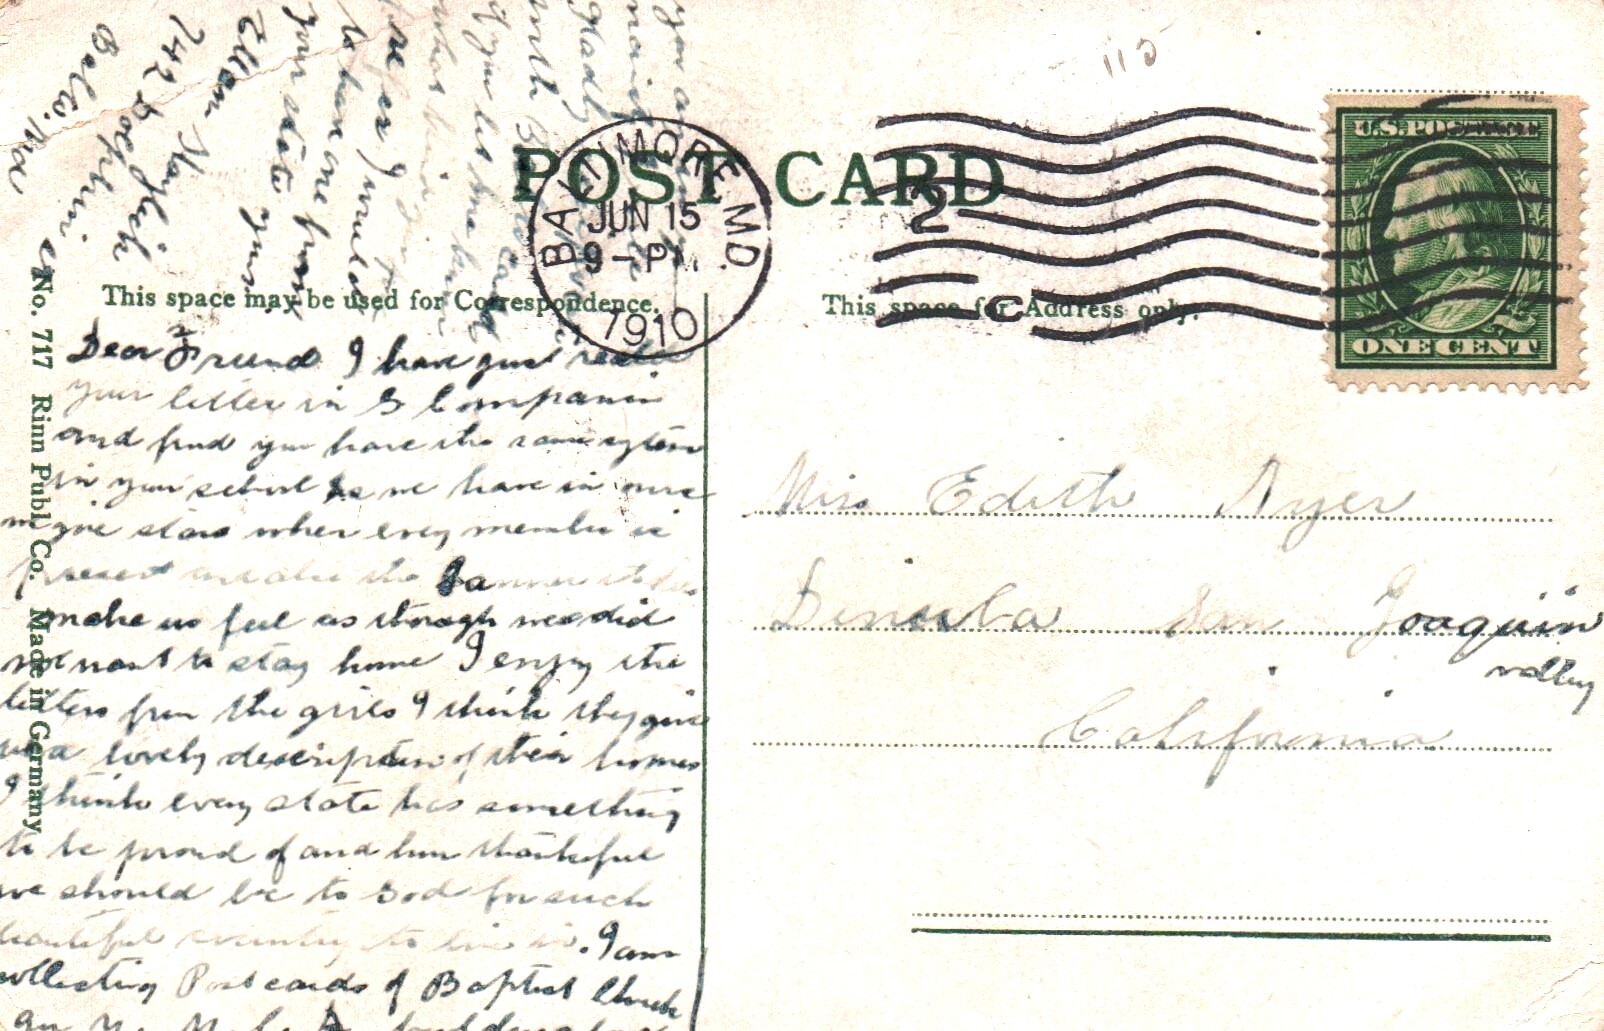 115
POST CARD
BALTIMORE, MD
JUN 15
9-PM
1910
2
C
U.S. POSTAGE
ONE CENT
This space may be used for Correspondence.
This space for Address only.
No. 717 Rinn Publ. Co. Made in Germany
Dear Friend I have just read
your letter in S Companion
and find you have the same system
in your school as we have in ours
we give stars when every member is
present and also the banner
make us feel as though we did
not want to stay home I enjoy the
letters from the girls I think they give
us a lovely description of their homes
I think every state has something
to be proud of and how thankful
we should be to God for such
beautiful country to live in. I am
collecting Postcards of Baptist Church
you
Gladly
if you let me know
prefer I would
to have one from
your state yours
Ellen Hayfleich
742 Dolphin
Balto. Md
Miss Edith Ayer
Dinuba San Joaquin
valley
California